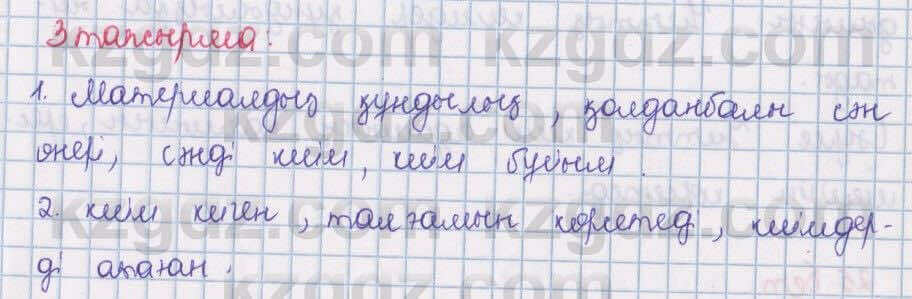 3 тапсырма:
1. Материалдық құндылық, қолданбалы сән
өнер, сәнді киім, киім бұйым.
2. киім киген, талғамын көрсетеді, киімдер-
ді атаған.
kzgdz.com